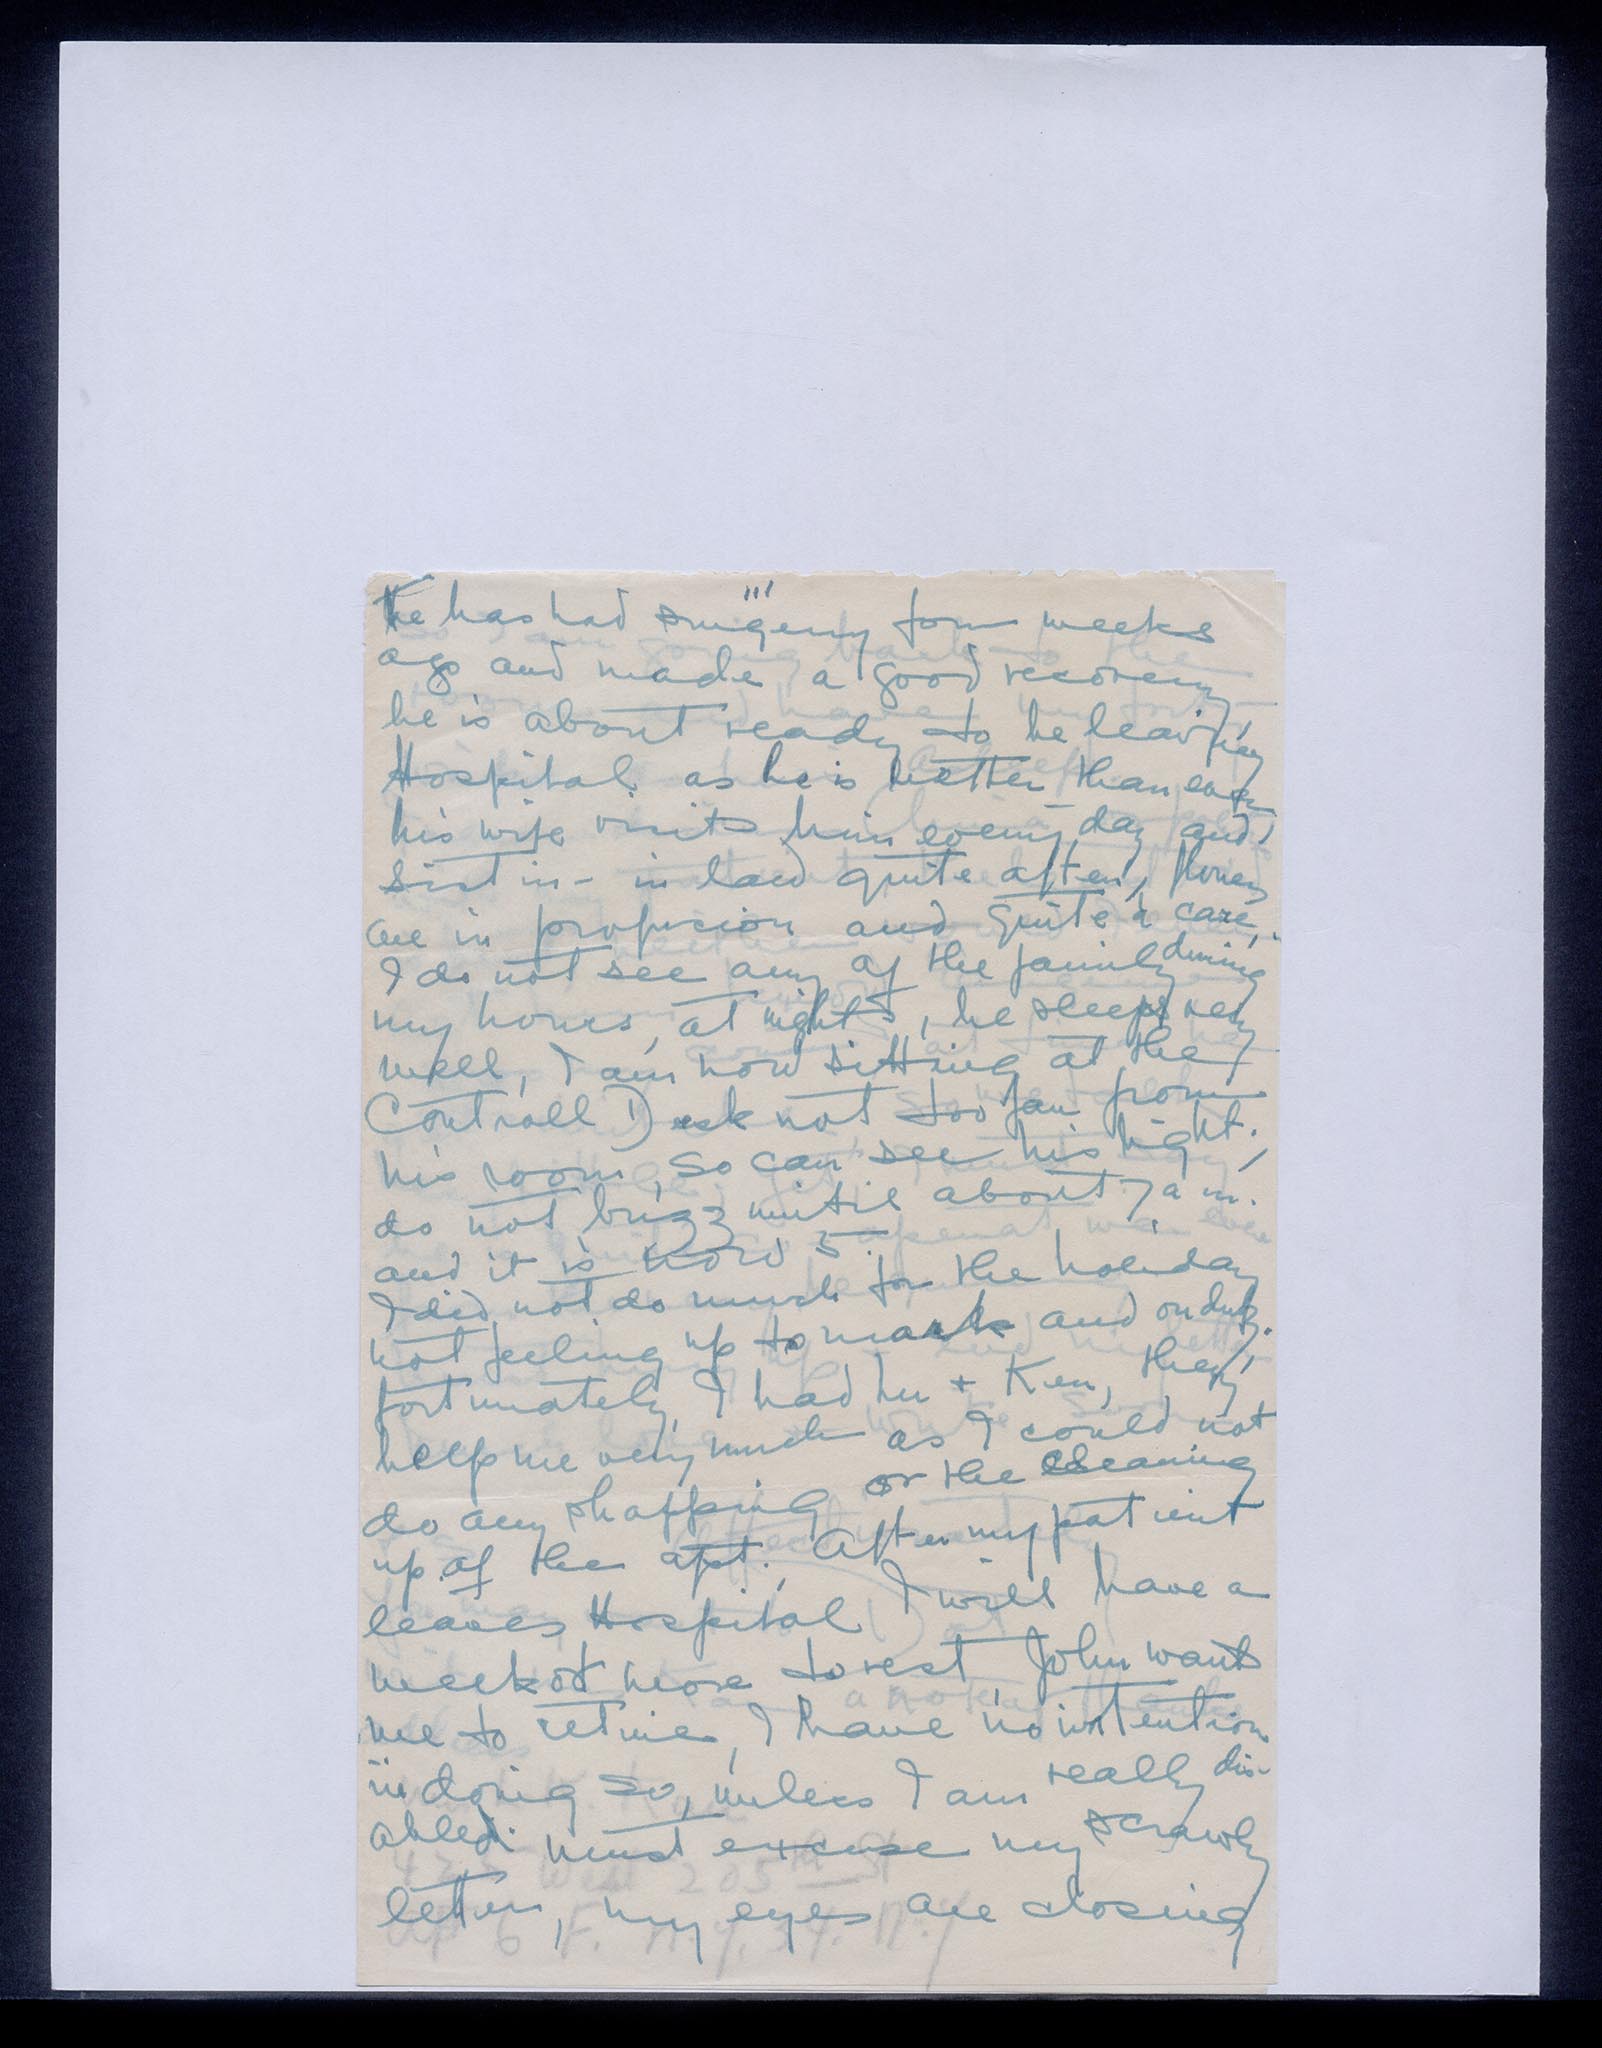 "'
He has had surgery four weeks
ago and made a good recovery
he is about ready to be leaving
Hospital. as he is better than ever
his wife visits him every day and
sister-in-law quite often, flowers
are in profusion and quite a care,
I do not see any of the family during
my hours, at nights, he sleeps very
well, I am now sitting at the
Controll Desk not too far from
his room, so can see his light.
do not buzz until about 7 a m.
and it is now 5.
I did not do much for the holiday
not feeling up to mark and on duty.
fortunately I had her + Ken, they
help me very much as I could not
do any shopping or the cleaning
up of the apt. After my patient
leaves Hospital I will have a
week or more to rest, John wants
me to retire, I have no intention
in doing so, unless I am really dis-
abled. must excuse my scrawly
letter, my eyes are closing